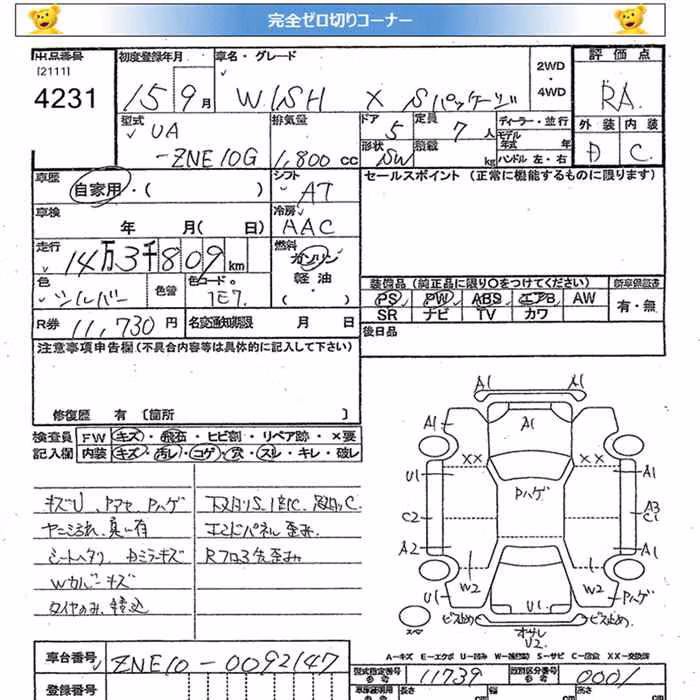 完全ゼロ切りコーナー
出品番号 初度登録年月 車名・グレード 2WD ・ 4WD 評価点
[2111]
4231 15 9月 WISH X Sパッケージ RA
型式 排気量 ドア 定員 ディーラー・並行 外装 内装
UA 5 7人 モデル年式 年
-ZNE10G 1,800cc 形状 SW 積載 kg ハンドル 左・右 D C
車歴 自家用・( ) シフト AT セールスポイント (正常に機能するものに限ります)
車検 年 月( 日) 冷房 AAC
走行 14万3千809km 燃料 ガソリン
軽油
・( )
色 シルバー 色替 色コード 1E7 装備品 (純正品に限り○をつけてください) 新車保証書
PS PW ABS エアB AW 有・無
SR ナビ TV カワ
R券 11,730円 名変通知期限 月 日 後日品
注意事項申告欄 (不具合内容等は具体的に記入して下さい)
修復歴 有 [箇所 ]
検査員 FW キズ・飛石・ヒビ割・リペア跡・×要
記入欄 内装 キズ・汚レ・コゲ・穴・スレ・キレ・破レ
キズU、Pアセ、Pハゲ
シートヘタリ、Dミラーキズ
Wカバーキズ
エンドパネル歪み
A1 A1
A1 A1
XX XX
U1 Pハゲ A1
C2 A3
C1
A2 A1
U1 W2 W2 Pハゲ
U1
ビス止め ビス止め
スペア
U2
A-キズ E-エクボ U-凹み W-補修跡 S-サビ C-腐食 XX-交換済
車台番号 ZNE10-0092147 型式指定番号 参考 11739 類別区分番号 参考 0001
登録番号 長さ cm 幅 cm 高さ cm